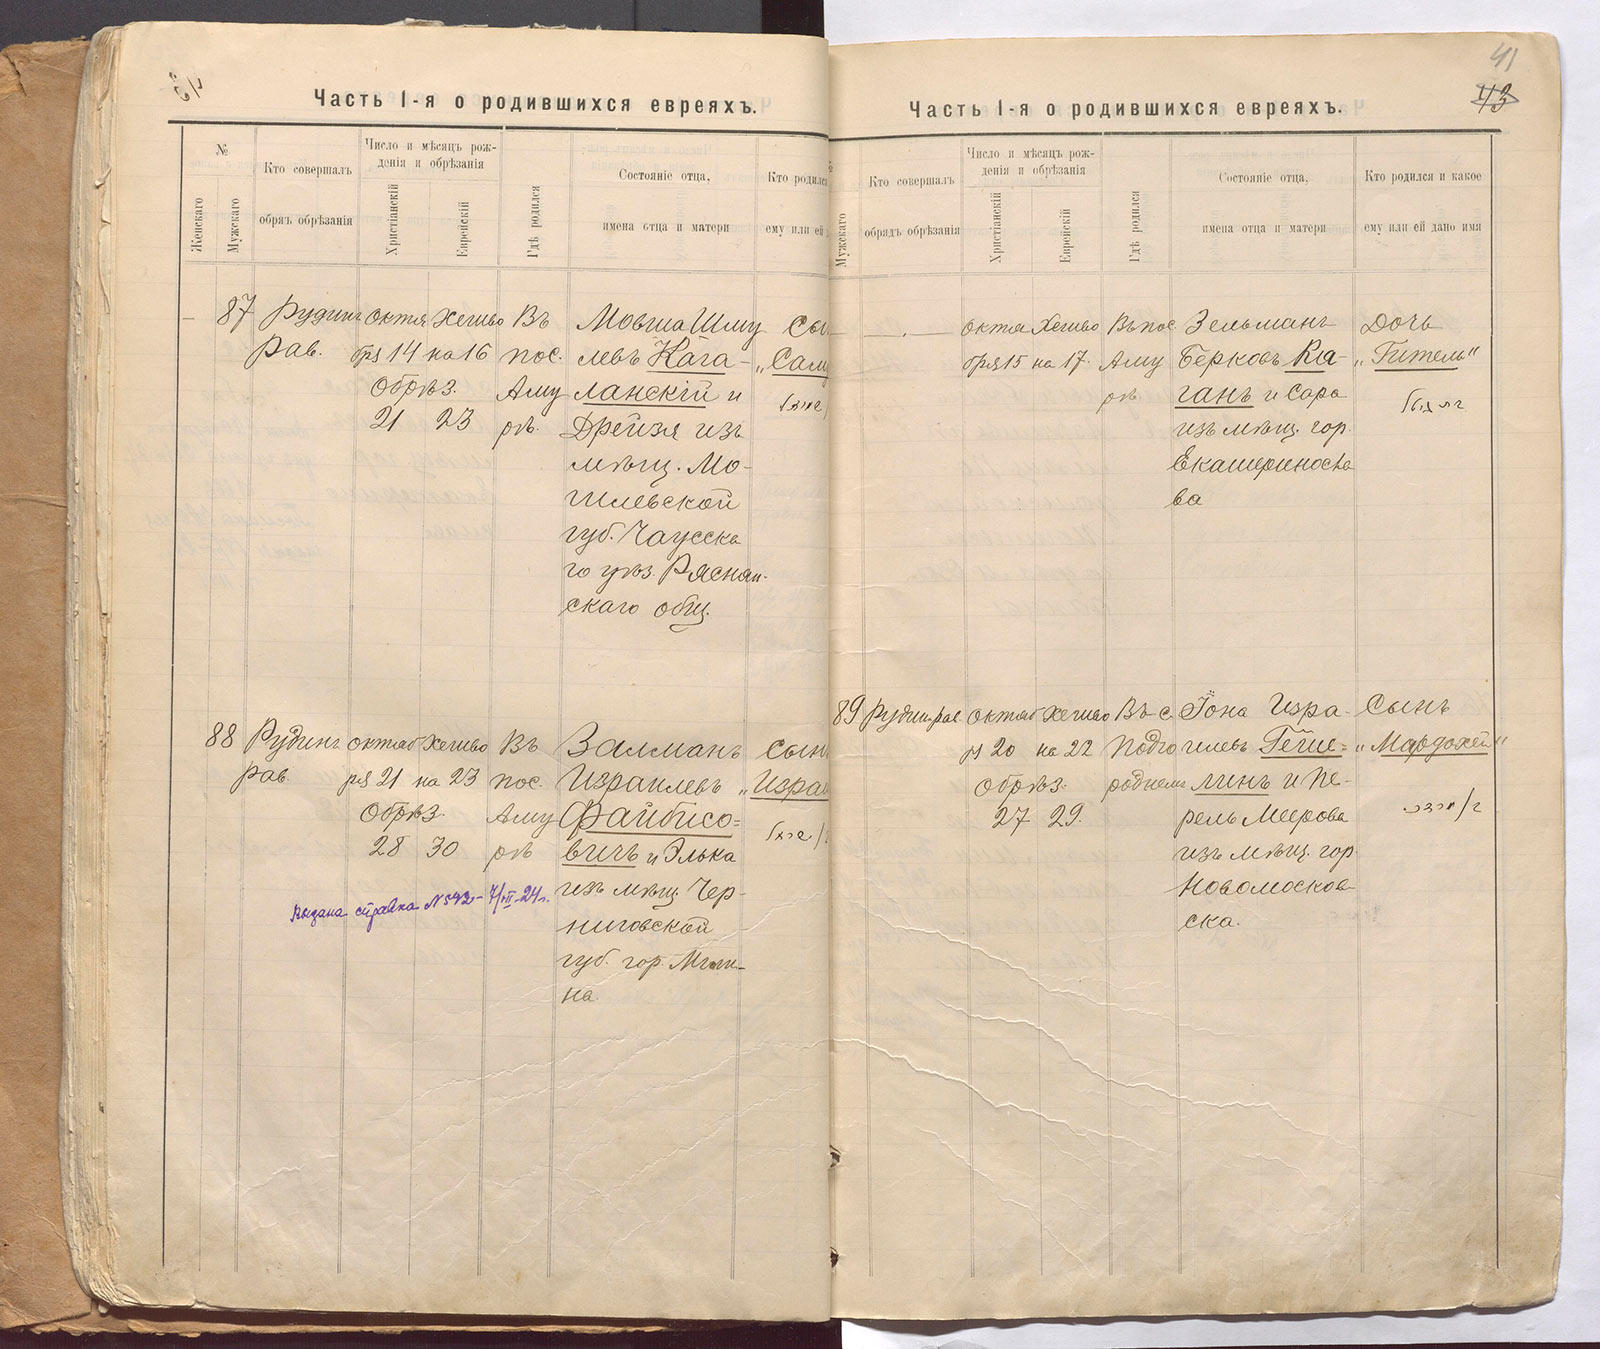 Часть I-я о родившихся евреяхъ.
№
Женскаго
Мужскаго
Кто совершалъ
обрядъ обрѣзанія
Число и мѣсяцъ рож-
денія и обрѣзанія
Христіанскій
Еврейскій
Гдѣ родился
Состояніе отца,
имена отца и матери
Кто родился
ему или ей
87
Рудинъ
Рав.
октя
бря 14
Обрѣз.
21
Хешво
на 16
23
Въ
пос.
Аму
рѣ.
Мовша Шму
левъ Кага-
ланскій и
Дрейзя изъ
мѣщ. Мо-
гилевской
губ. Чаусска
го уѣз. Ряснян-
скаго общ.
Сы
„Саму
88
Рудинъ
рав.
октяб
ря 21
Обрѣз.
28
Хешво
на 23
30
Въ
пос.
Аму
рѣ
Залманъ
Израилевъ
Файбисо=
вичъ и Элька
изъ мѣщ. Чер-
ниговской
губ. гор. Мгли-
на.
Сынъ
„Израи
Выдана справка N 542 - 7/VII-24г.
41
43
Часть I-я о родившихся евреяхъ.
Мужскаго
Кто совершалъ
обрядъ обрѣзанія
Число и мѣсяцъ рож-
денія и обрѣзанія
Христіанскій
Еврейскій
Гдѣ родился
Состояніе отца,
имена отца и матери
Кто родился и какое
ему или ей дано имя
октя
бря 15
Хешво
на 17.
Въ пос.
Аму
рѣ
Зельманъ
Берковъ Ка-
ганъ и Сора
изъ мѣщ. гор.
Екатериносла
ва
Дочь
„Гитель"
89
Рудинъ рав
октяб
ря 20
Обрѣз.
27
Хешво
на 22
29.
Въ с.
Подго
роднемъ
Іона Изра-
илевъ Гейше=
линъ и Пе-
рель Меерова
изъ мѣщ. гор.
Новомосков
ска.
Сынъ
„Мордохей"